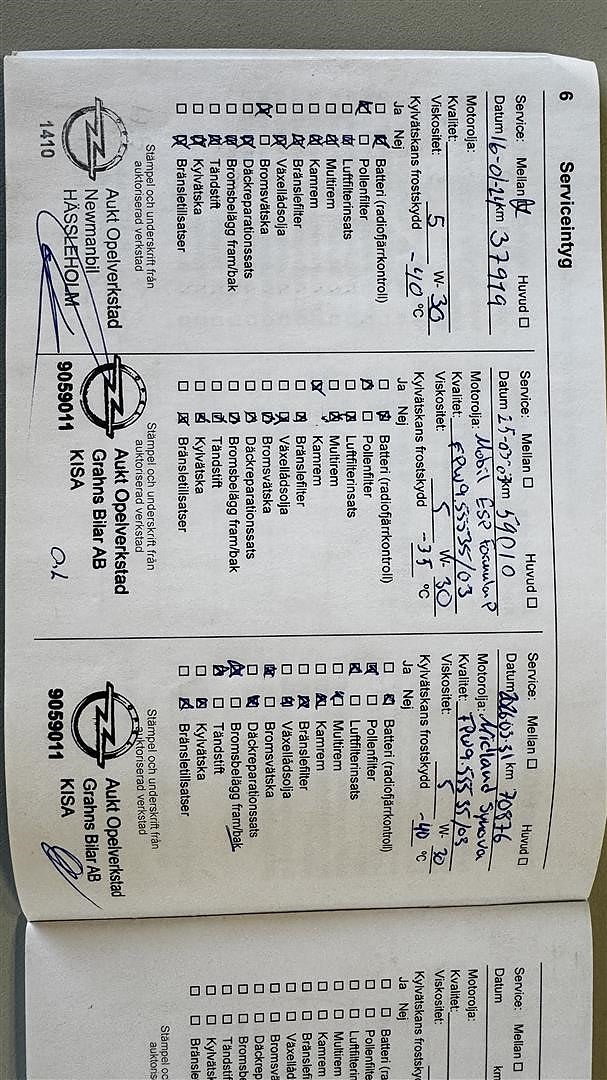 6 Serviceintyg
Service: Mellan ☒ Huvud ☐
Datum 16-01-24 km 37919
Motorolja:
Kvalitet:
Viskositet: 5 W- 30
Kylvätskans frostskydd -40 °C
Ja Nej
☐ ☒ Batteri (radiofjärrkontroll)
☒ ☐ Pollenfilter
☐ ☒ Luftfilterinsats
☐ ☒ Multirem
☐ ☒ Kamrem
☐ ☒ Bränslefilter
☐ ☒ Växellådsolja
☒ ☐ Bromsvätska
☐ ☒ Däckreparationssats
☐ ☒ Bromsbelägg fram/bak
☐ ☒ Tändstift
☐ ☒ Kylvätska
☐ ☒ Bränsletillsatser
Stämpel och underskrift från
auktoriserad verkstad
Aukt Opelverkstad
Newmanbil
HÄSSLEHOLM
1410
Service: Mellan ☐ Huvud ☐
Datum 25-03-03 km 59010
Motorolja: Mobil ESP Formula P
Kvalitet: FPW9.55535/03
Viskositet: 5 W- 30
Kylvätskans frostskydd -35 °C
Ja Nej
☐ ☒ Batteri (radiofjärrkontroll)
☒ ☐ Pollenfilter
☐ ☒ Luftfilterinsats
☐ ☒ Multirem
☒ ☐ Kamrem
☐ ☒ Bränslefilter
☐ ☒ Växellådsolja
☐ ☒ Bromsvätska
☐ ☒ Däckreparationssats
☐ ☒ Bromsbelägg fram/bak
☐ ☒ Tändstift
☐ ☒ Kylvätska
☐ ☒ Bränsletillsatser
Stämpel och underskrift från
auktoriserad verkstad
Aukt Opelverkstad
Grahns Bilar AB
9059011 KISA
Service: Mellan ☐ Huvud ☐
Datum km 70876
Motorolja: Midland Synova
Kvalitet: FPW9.55535/03
Viskositet: 5 W- 30
Kylvätskans frostskydd -40 °C
Ja Nej
☐ ☒ Batteri (radiofjärrkontroll)
☒ ☐ Pollenfilter
☒ ☐ Luftfilterinsats
☐ ☒ Multirem
☐ ☒ Kamrem
☐ ☒ Bränslefilter
☐ ☒ Växellådsolja
☒ ☐ Bromsvätska
☐ ☒ Däckreparationssats
☒ ☐ Bromsbelägg fram/bak
☒ ☐ Tändstift
☐ ☒ Kylvätska
☐ ☒ Bränsletillsatser
Stämpel och underskrift från
auktoriserad verkstad
Aukt Opelverkstad
Grahns Bilar AB
9059011 KISA
Service: Mellan ☐
Datum km
Motorolja:
Kvalitet:
Viskositet:
Kylvätskans frostsky
Ja Nej
☐ ☐ Batteri (ra
☐ ☐ Pollenfilter
☐ ☐ Luftfilterin
☐ ☐ Multirem
☐ ☐ Kamrem
☐ ☐ Bränslefi
☐ ☐ Växellåd
☐ ☐ Bromsvä
☐ ☐ Däckrep
☐ ☐ Bromsb
☐ ☐ Tändstift
☐ ☐ Kylvätsk
☐ ☐ Bränsle
Stämpel oc
auktoris